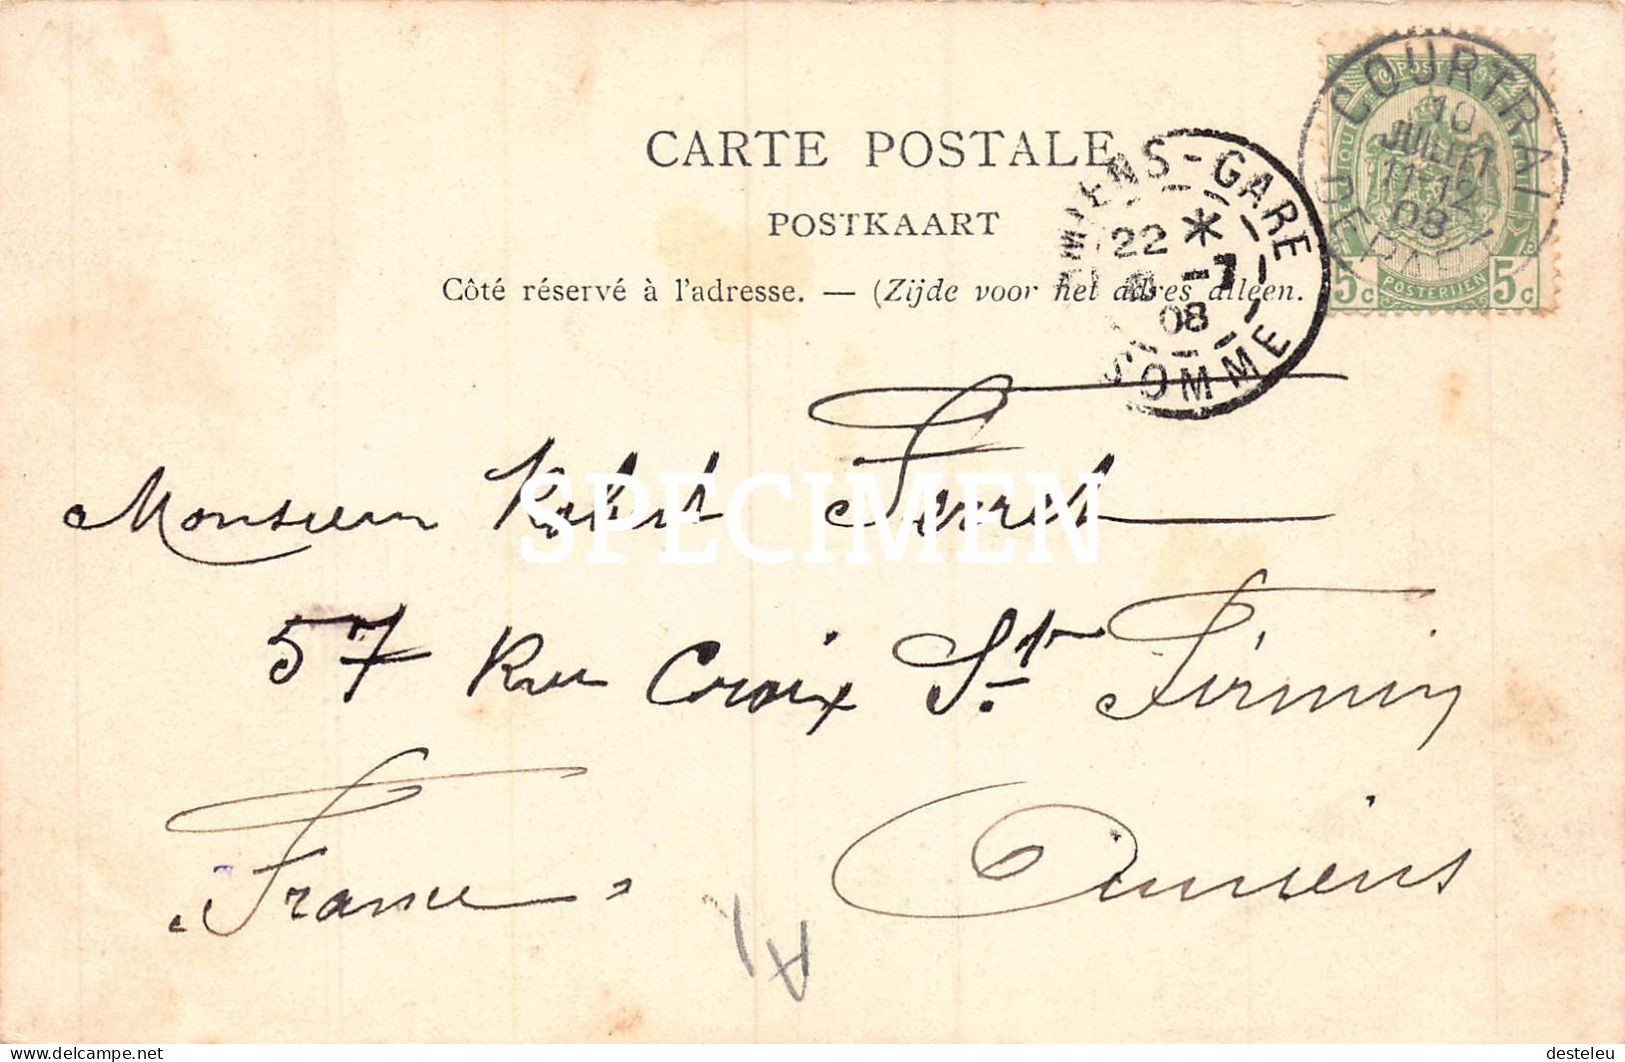 CARTE POSTALE
POSTKAART
Côté réservé à l'adresse. — (Zijde voor het adres alleen.
COURTRAI
10
JUILLET
11-12
08
5c POSTERIJEN 5c
AMIENS-GARE
22 *
-7
08
SOMME
Monsieur Robert Ferret
57 Rue Croix St. Firmin
Amiens
France
SPECIMEN
www.delcampe.net
desteleu